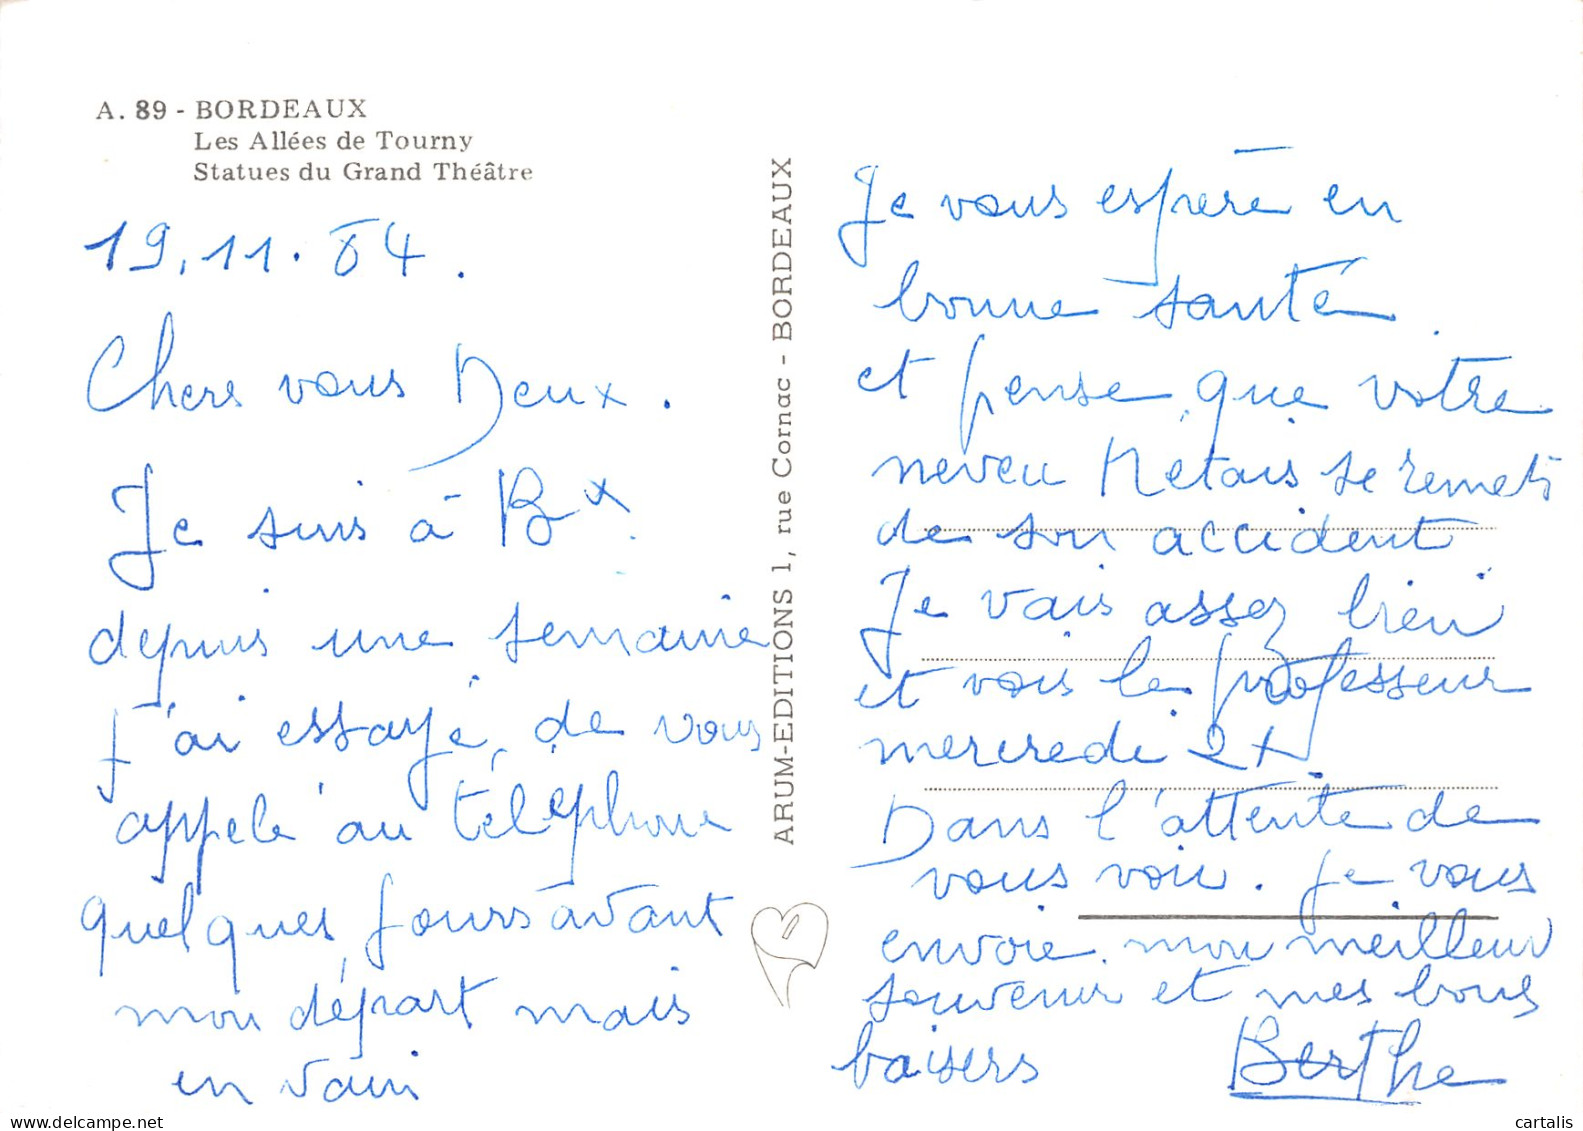 A. 89 - BORDEAUX
Les Allées de Tourny
Statues du Grand Théâtre
19.11.84.
Chers vous Deux.
Je suis à Bx.
depuis une semaine
j'ai essayé de vous
appelé au téléphone
quelques jours avant
mon départ mais
en vain
ARUM-EDITIONS 1, rue Cornac - BORDEAUX
Je vous espère en
bonne santé.
et pense que votre
neveu Métais se remets
de son accident
Je vais assez bien
et vois le professeur
mercredi 21
Dans l'attente de
vous voir. je vous
envoie mon meilleur
souvenir et mes bons
baisers Berthe
www.delcampe.net
cartalis